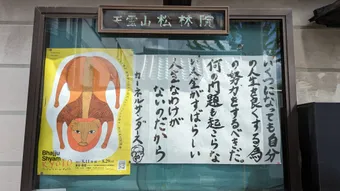 雲山松林院
いくつになっても自分
の人生を良くする為
の努力をするべきだ。
何の問題も起こらな
い人生がすばらしい
人生なわけが
ないのだから
カーネルサンダース
Bhajju
Shyam